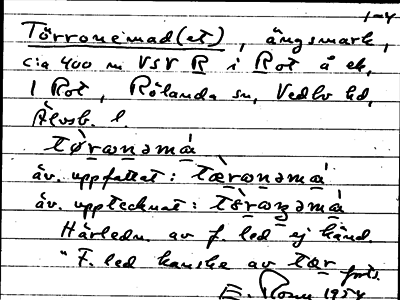 1-4
Törronemad(et), ängsmark,
cia 400 m VSV R i Rot å ek,
1 Rot, Rölanda sn, Vedbo hd,
Älvsb. l.
tø̀rɷnəmá
äv. uppfattat: tæ̀rɷnəmá
äv. upptecknat:
Härledn. av f. led ej känd.
"F. led kanske av tør forts.
E. Rosm 1954